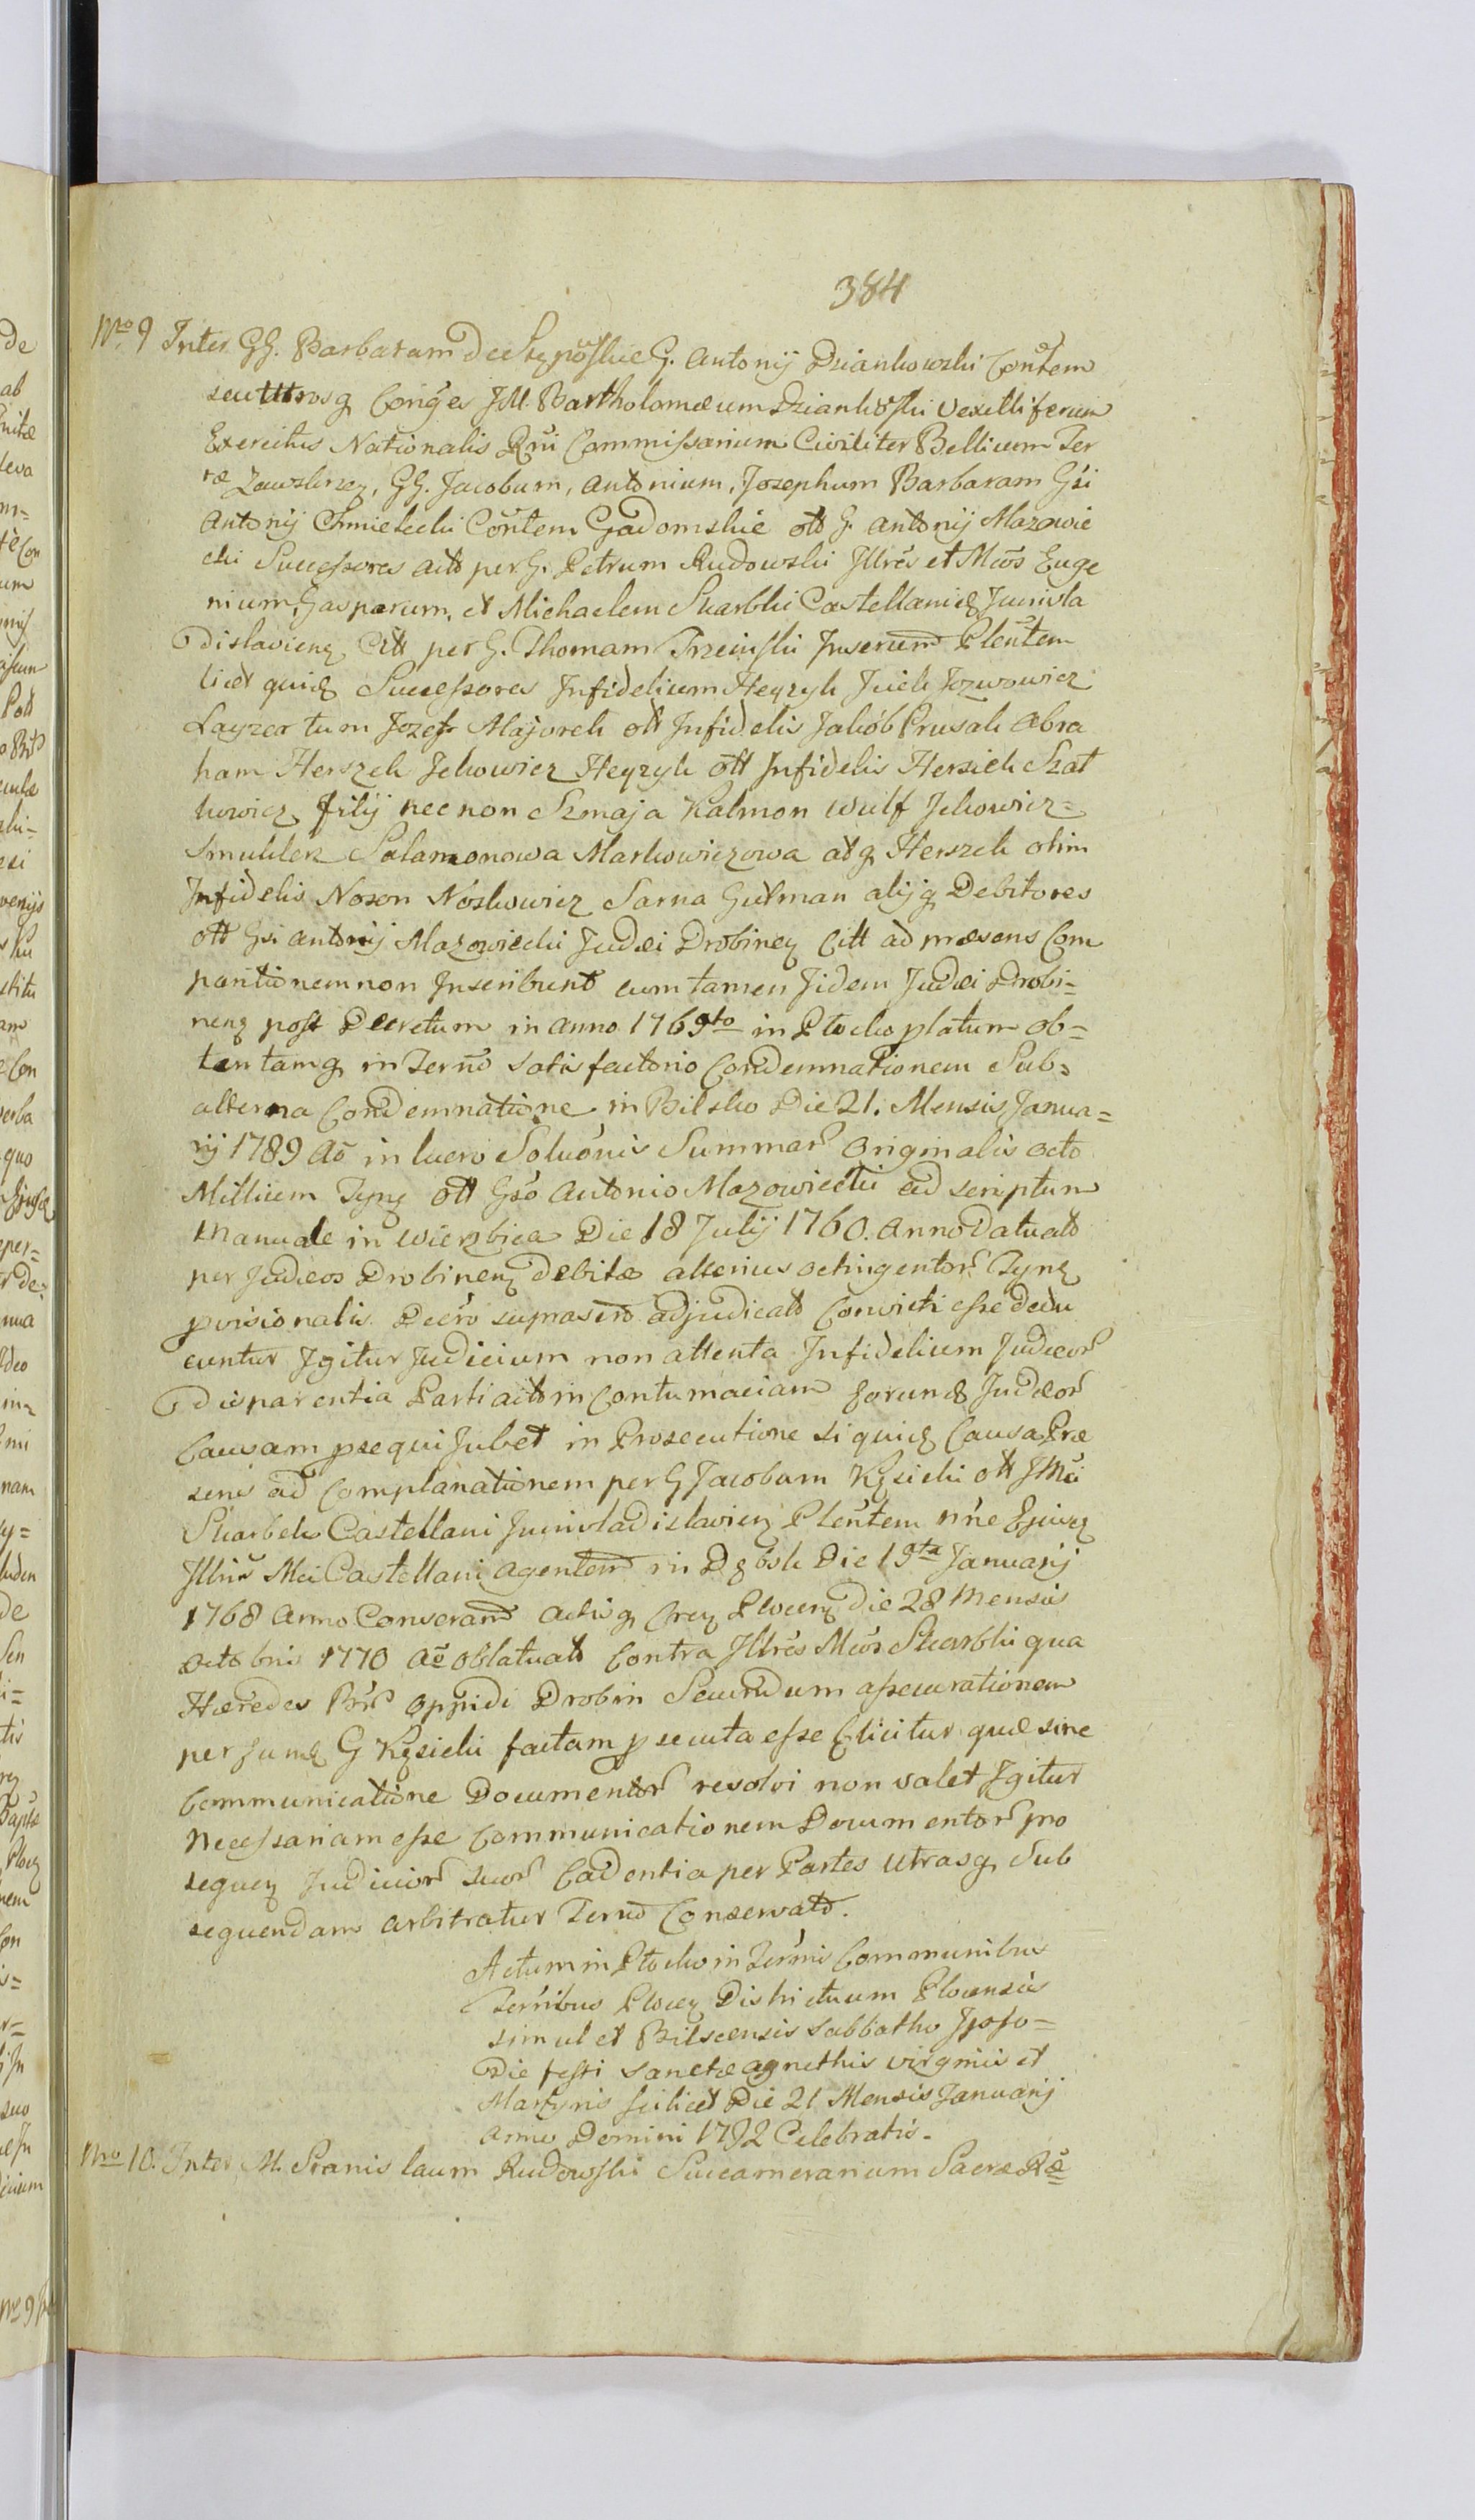 384
Nro 9 Inter GG. Barbaram de Stępowskie G. Antonij Dziankowski Contem
seu Utrosq Conges JM. Bartholomæum Dziankowski Vexilliferum
Exercitus Nationalis Rni Commissarium Civiliter Bellicum Ter
ræ Zawskrzeg, GG. Jacobum, Antonium, Josephum Barbaram Gsi
Antonij Chmielecki Contem Gadomskie olt G. Antonij Mazowie
cki Successores acto per G. Petrum Rudowski Illres et Mcos Euge
nium, Gasparum, et Michaelem Skarbki Castellanid Junivla
dislavieng Citt per G. Thomam Trzcinski Inserum Plentem
licet quid Successores Infidelium Heyzyk Jcick Jozwowicz
Layzer tum Jozef Majorek olt Infidelis Jakób Prusak Abra
ham Herszek Jckowicz Heyzyk olt Infidelis Hersiek Szat
kowicz filij nec non Szmaja Kalmon Wulf Jckowicz=
Smuklerz Salamonowa Markowiczowa atq Herszek olim
Infidelis Noson Noskowicz Sarna Gutman alijq Debitores
olt Gsi Antonij Mazowiecki Judæi Drobineg Citt ad præsens Com
paritionem non Inscribunt cum tamen Iidem Judæi Drobi=
neng post Decretum in Anno 1769to in Płocko platum ob=
tentamq in Terno satisfactorio Condemnationem Sub=
alterna Condemnatione in Bilsko Die 21. Mensis Janua=
rij 1789 Ao in lucro Soluonis Summar Originalis octo
Millium Tynf olt Gso Antonio Mazowiecki ad scriptum
manuale in Wierzbica Die 18 Julij 1760. Anno Datuato
per Judæos Drobineng debitæ alterius octingentor Tynf
pvisionalis Decro suprascro adjudicato Convicti esse dedu
cuntur Igitur Judicium non attenta Infidelium Judæor
disparentia Parti acto in Contumaciam eorund Judæor
Causam psequi Jubet in Prosecutione siquid Causa Præ
sens ad Complanationem per G Jacobum Kęsicki olt JMci
Skarbek Castellani Junivladislavieng Plentem nne Ejusq
Illris Mci Castellani agentem in Dębsk Die 19ta Januarij
1768 Anno Conseram Actisq Creg Plocen Die 28 Mensis
Octobris 1770 Ao Oblatuato Contra Illres Mcos Skarbki qua
Hæredes Bor Oppidi Drobin Secundum assecurationem
per fund G Kęsicki factam psecuta esse Elicitur quæ sine
Communicatione Documentor resolvi non valet Igitur
Necessariam esse Communicationem Documentor pro
sequen Judicior suor Cadentia per Partes Utrasq Sub
sequendam arbitratur Terno Conservato.
Actum in Płocko in Ternis Communibus
Terribus Plocen Districtuum Plocensis
simul et Bilscensis Sabbatho Ipso=
Die festi Sanctæ Agnethis Virginis et
Martyris scilicet Die 21 Mensis Januarij
Anno Domini 1792 Celebratis.
Nro 10. Inter M. Stanislaum Rudowski Succamerarium Sacræ Ræ=